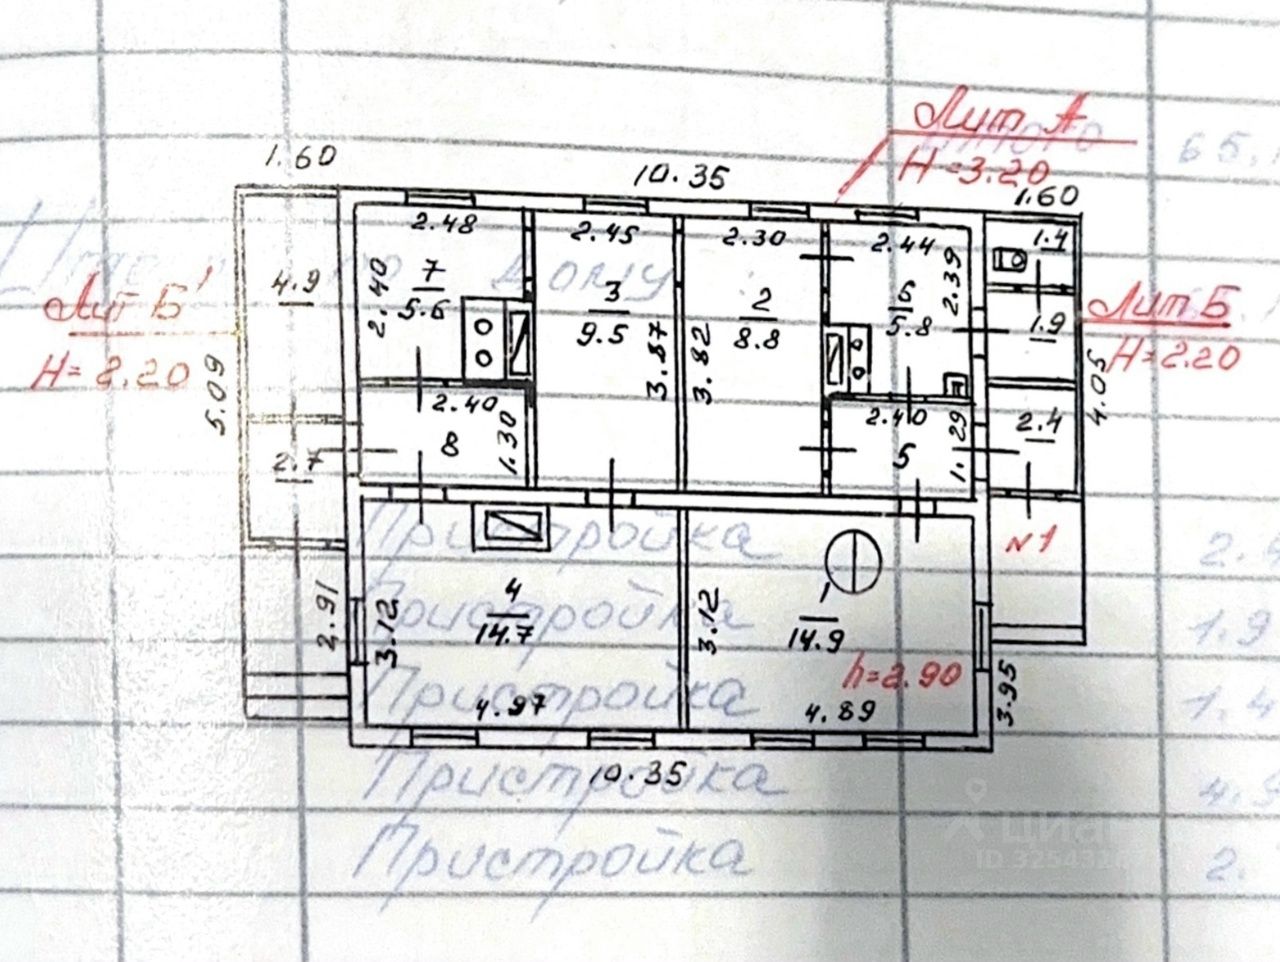 Лит А
итого
65.
H=3.20
1.60
10.35
1.60
2.48
2.45
2.30
2.44
1.4
4.9
2.40
7
5.6
дому
3
9.5
2
8.8
6
5.8
2.39
Лит Б'
H=2.20
Лит Б
H=2.20
1.9
5.09
3.87
3.82
4.05
2.40
1.30
8
2.40
5
1.29
2.4
2.7
Пристройка
№1
2.
2.91
3.12
4
14.7
Пристройка
3.12
1
14.9
1.9
h=2.90
3.95
Пристройка
1.4
4.97
4.89
10.35
Пристройка
4.9
Пристройка
2.
циан
ID 32543